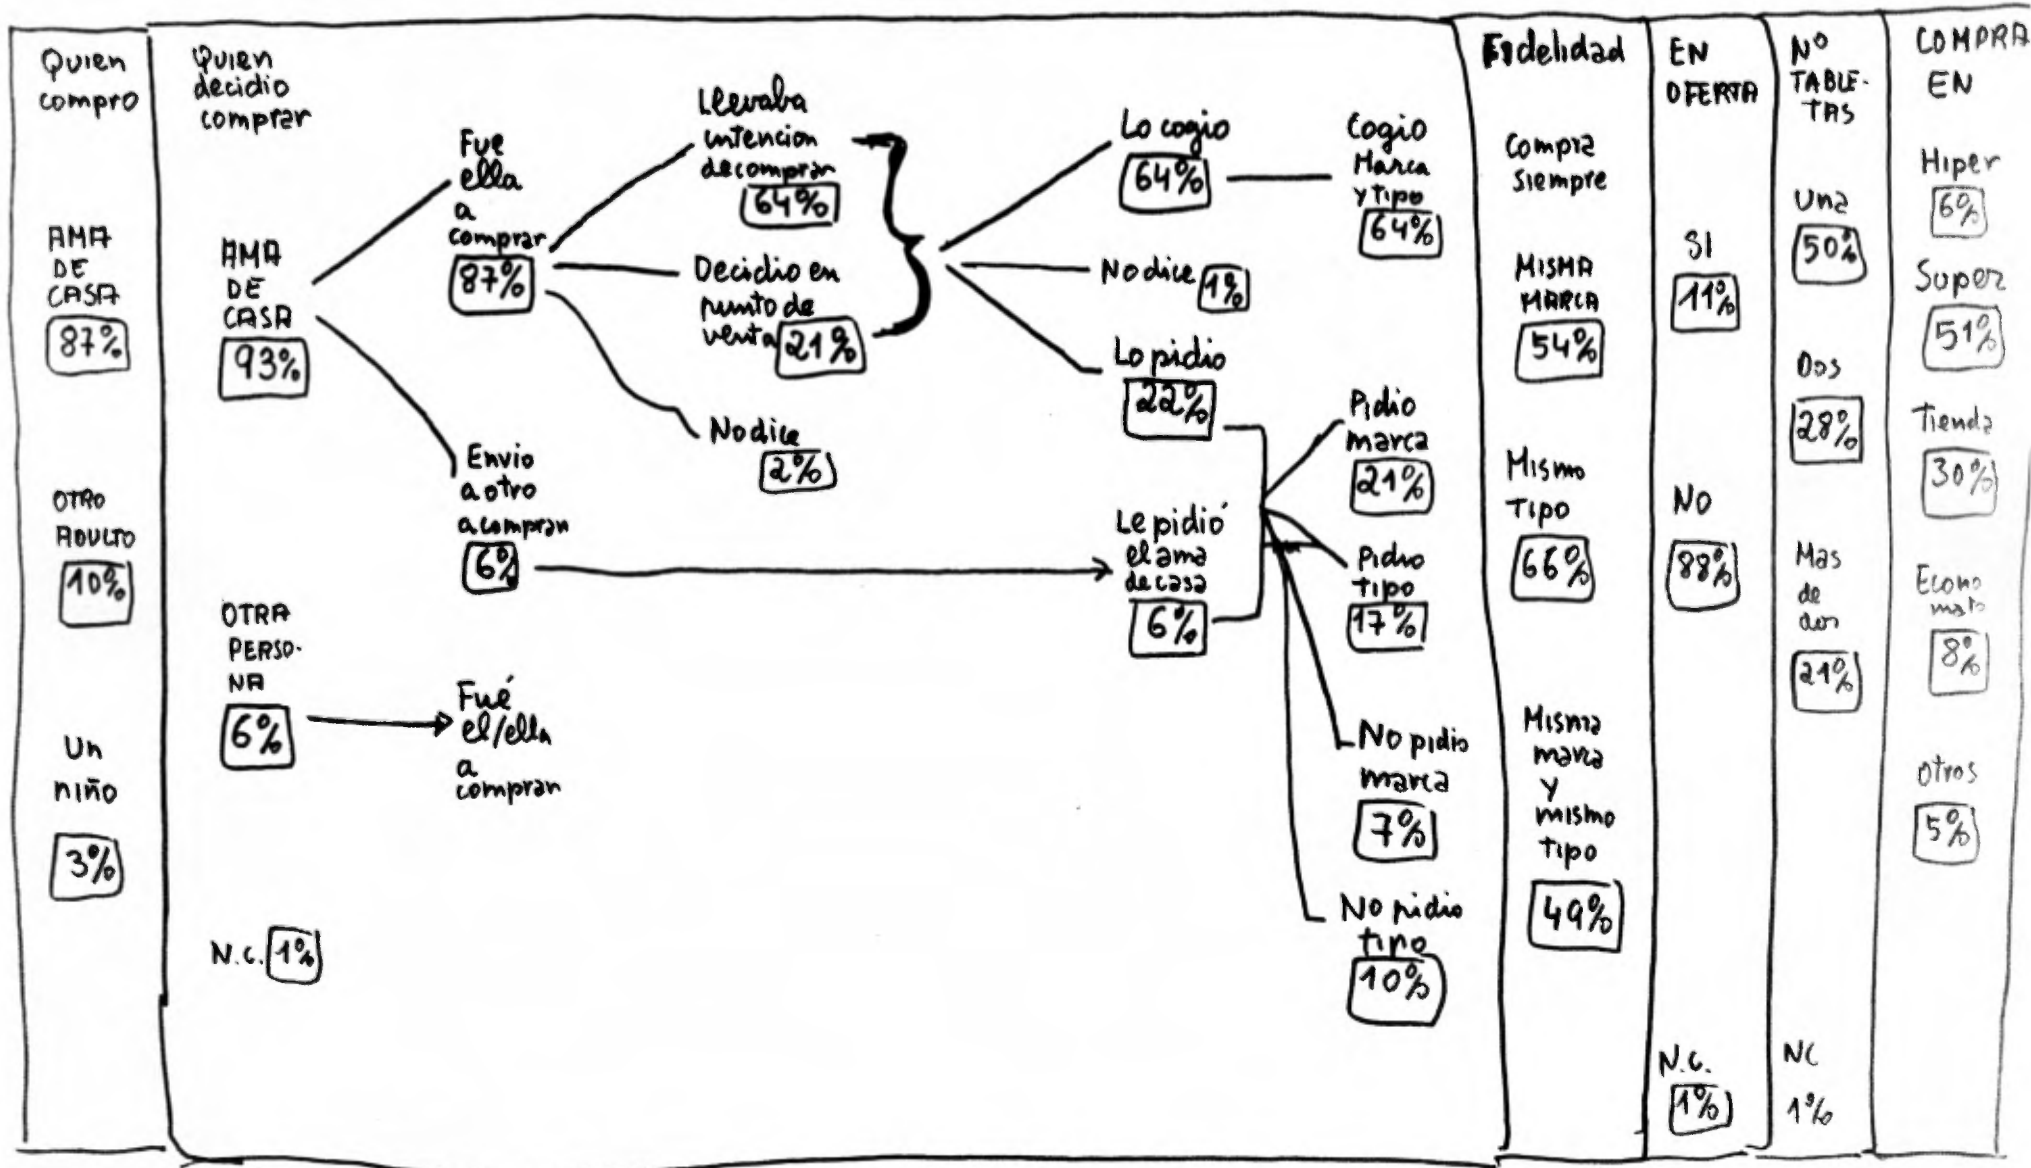 Quien
compro
AMA
DE
CASA
87%
OTRO
ADULTO
10%
Un
niño
3%
Quien
decidio
comprar
AMA
DE
CASA
93%
OTRA
PERSO-
NA
6%
N.C. 1%
Fue
ella
a
comprar
87%
Envio
a otro
a comprar
6%
Fué
el/ella
a
comprar
Llevaba
intencion
de comprar
64%
Decidio en
punto de
venta 21%
No dice
2%
Lo cogio
64%
No dice 1%
Lo pidio
22%
Le pidió
el ama
de casa
6%
Cogio
Marca
y tipo
64%
Pidio
marca
21%
Pidio
tipo
17%
No pidio
marca
7%
No pidio
tipo
10%
Fidelidad
Compra
siempre
MISMA
MARCA
54%
Mismo
Tipo
66%
Misma
marca
y
mismo
tipo
49%
EN
OFERTA
SI
11%
NO
88%
N.C.
1%
Nº
TABLE-
TAS
Una
50%
Dos
28%
Mas
de
dos
21%
NC
1%
COMPRA
EN
Hiper
6%
Super
51%
Tienda
30%
Econo
mato
8%
Otros
5%